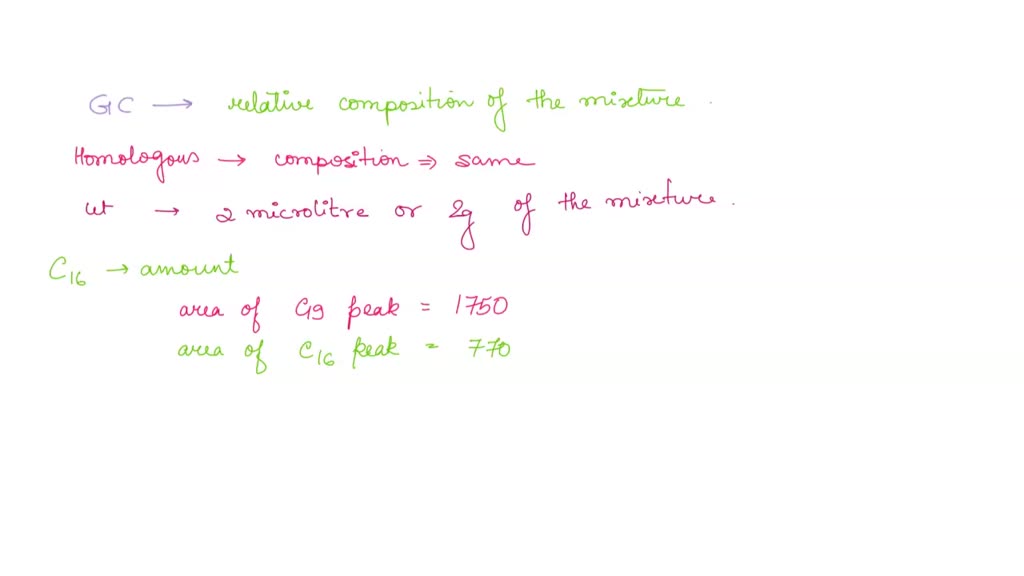 GC → relative composition of the mixture.
Homologous → composition ⇒ same
let → 2 microlitre or 2g of the mixture.
C16 → amount
area of C19 peak = 1750
area of C16 peak = 770